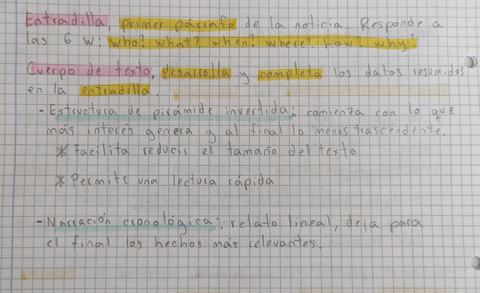 Entradilla, primer párrafo de la noticia. Responde a
las 6 W: who? what? when? where? how? why?
Cuerpo de texto, desarrolla y completa los datos resumidos
en la entradilla.
- Estructura de pirámide invertida: comienza con lo que
más interés genera y al final lo menos trascendente.
* Facilita reducir el tamaño del texto
* Permite una lectura rápida
- Narración cronológica: relato lineal, deja para
el final los hechos más relevantes.